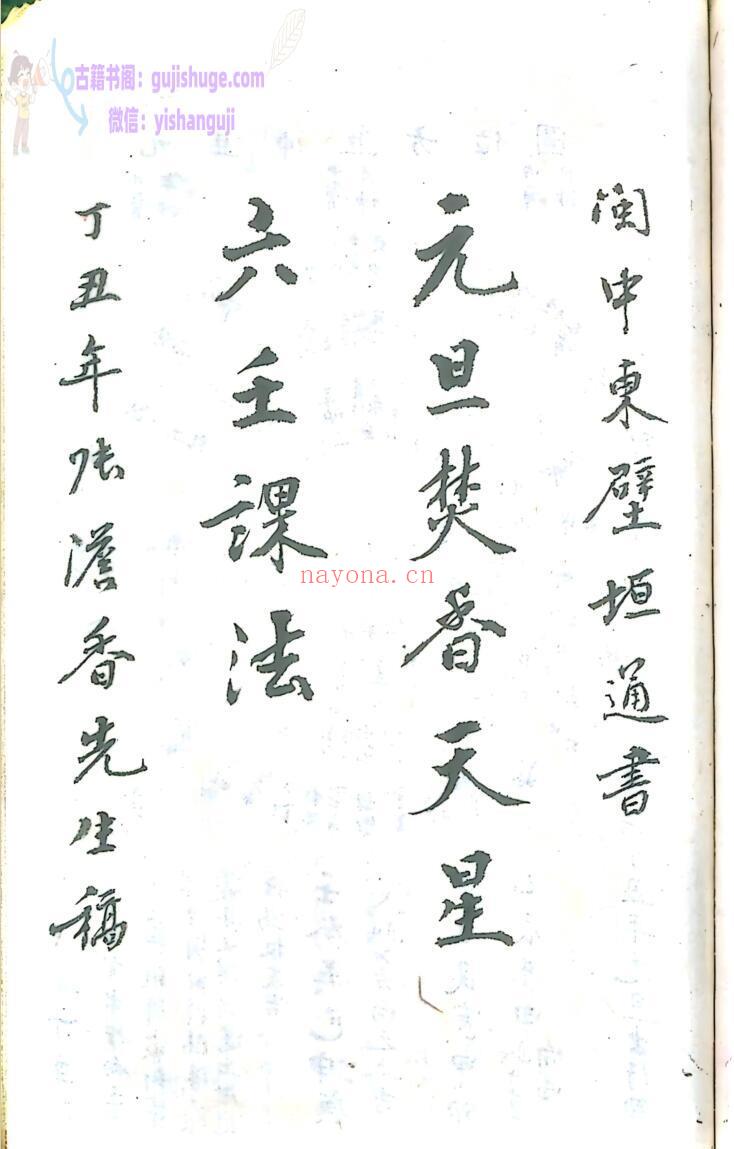 古籍书阁：gujishuge.com
微信：yishanguji
闽中東壁垣通書
元旦焚香天星
六壬課法
丁丑年张澹香先生稿
nayona.cn